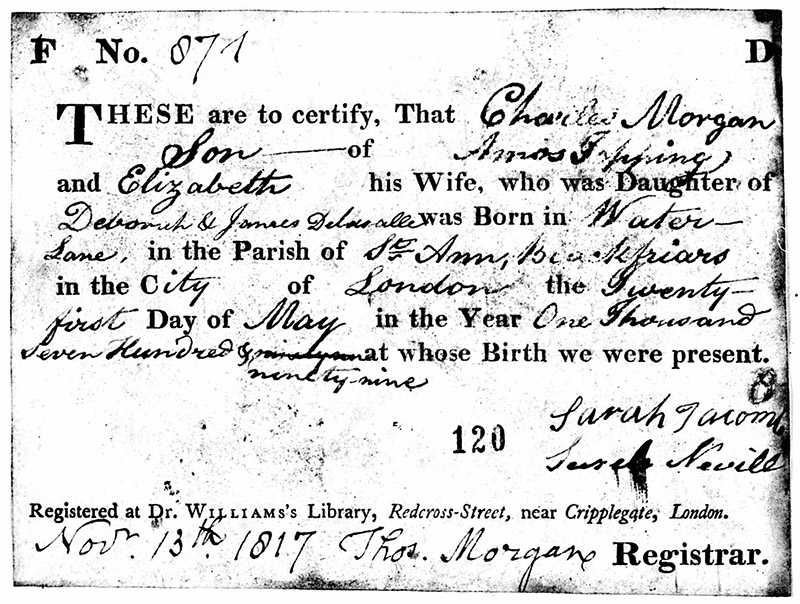 F No. 871 D
THESE are to certify, That Charles Morgan
Son of Amos Topping,
and Elizabeth his Wife, who was Daughter of
Deborah & James Delasalle was Born in Water
Lane, in the Parish of St. Ann, Blackfriars
in the City of London the Twenty-
first Day of May in the Year One Thousand
Seven Hundred & at whose Birth we were present.
ninety-nine
8
Sarah Jacomb
120
Sarah Nevill
Registered at Dr. WILLIAMS's Library, Redcross-Street, near Cripplegate, London.
Novr. 13th. 1817 Thos. Morgan Registrar.